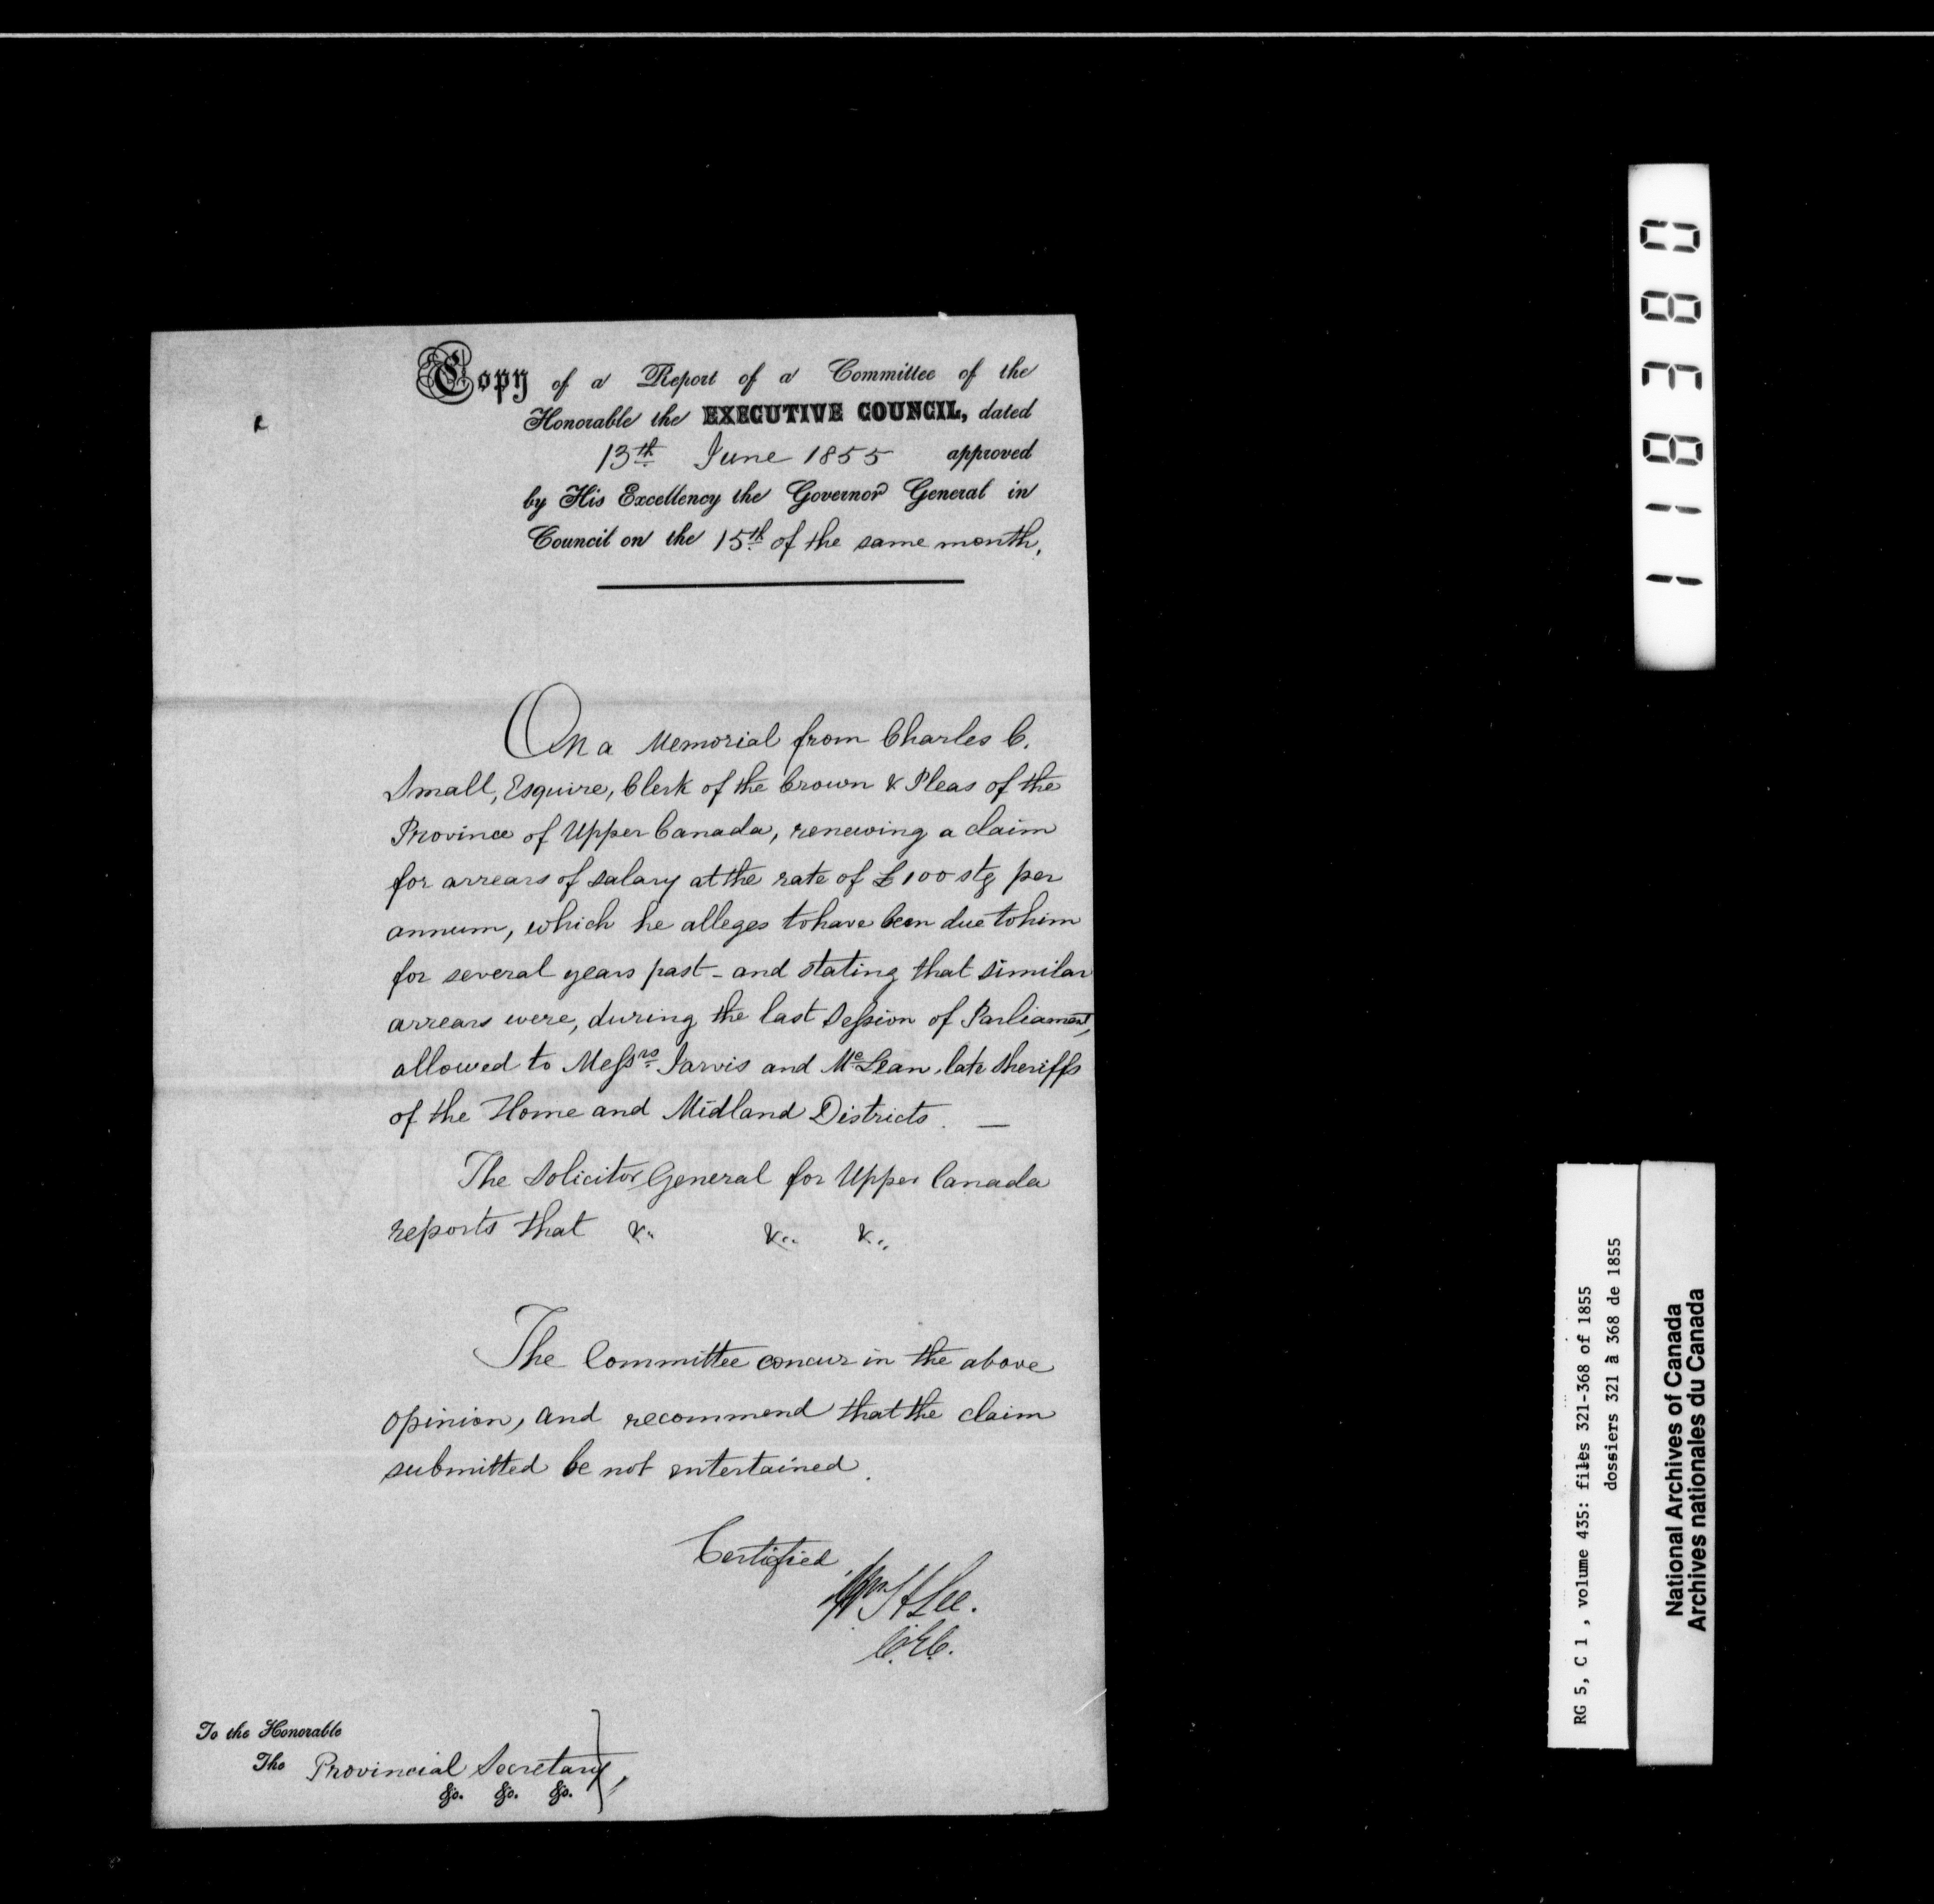 Copy of a Report of a Committee of the
Honorable the EXECUTIVE COUNCIL, dated
13th June 1855 approved
by His Excellency the Governor General in
Council on the 15th of the same month.
On a Memorial from Charles C.
Small, Esquire, Clerk of the Crown & Pleas of the
Province of Upper Canada, renewing a claim
for arrears of salary at the rate of £100 stg per
annum, which he alleges to have been due to him
for several years past - and stating that similar
arrears were, during the last Session of Parliament,
allowed to Messrs Jarvis and McLean, late Sheriffs
of the Home and Midland Districts. —
The Solicitor General for Upper Canada
reports that &c. &c. &c.
The Committee concur in the above
opinion, and recommend that the claim
submitted be not entertained.
Certified
Wm H Lee.
C.E.C.
To the Honorable
The Provincial Secretary,
&c. &c. &c.
118380
RG 5, C 1 , volume 435: files 321-368 of 1855
dossiers 321 à 368 de 1855
National Archives of Canada
Archives nationales du Canada